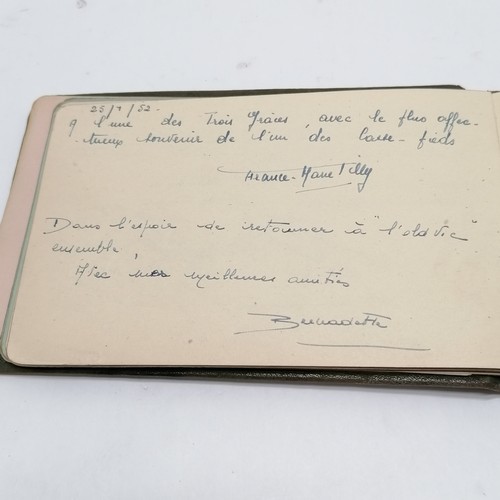 25/7/52.
A l'une des Trois Grâces, avec le plus affec-
-tueux souvenir de l'un des Casse-pieds
France-Marie Tilly
Dans l'espoir de retourner à "l'old Vic"
ensemble,
Avec mes meilleures amitiés
Bernadette